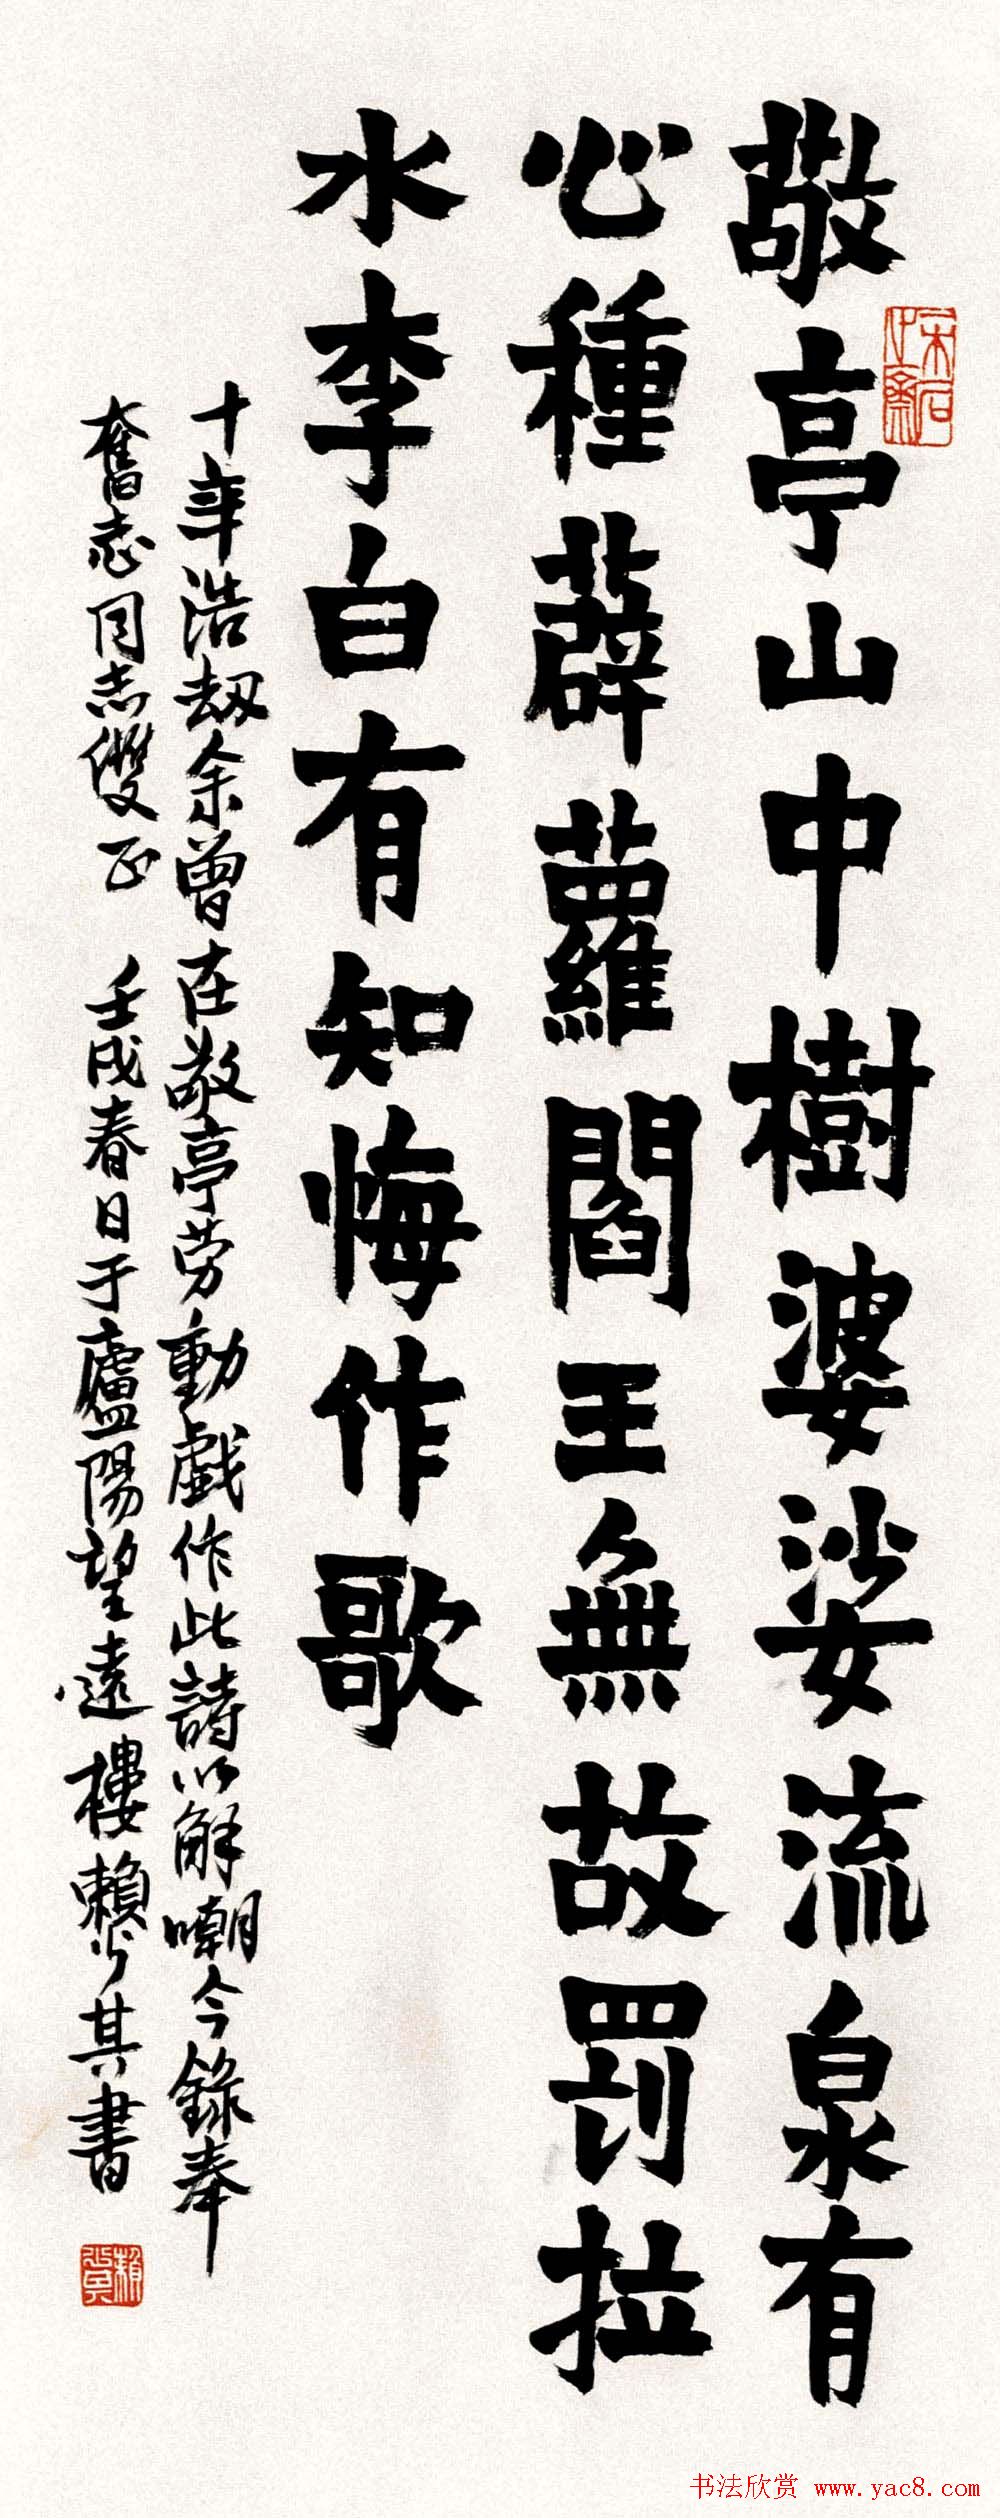 敬亭山中樹婆娑流泉有
心種薜蘿閻王無故罰拉
水李白有知悔作歌
十年浩劫余曾在敬亭劳動戲作此詩以解嘲今錄奉
奮志同志雙正 壬戌春日于廬陽望遠樓賴少其書
书法欣赏 www.yac8.com